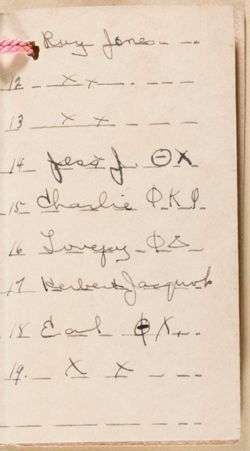 Roy Jones
12 x x
13 x x
14 Jess J. ΘX
15 Charlie ΦKΨ
16 Lovejoy ΦΔ
17 Herbert
18 Earl ΦX
19. x x